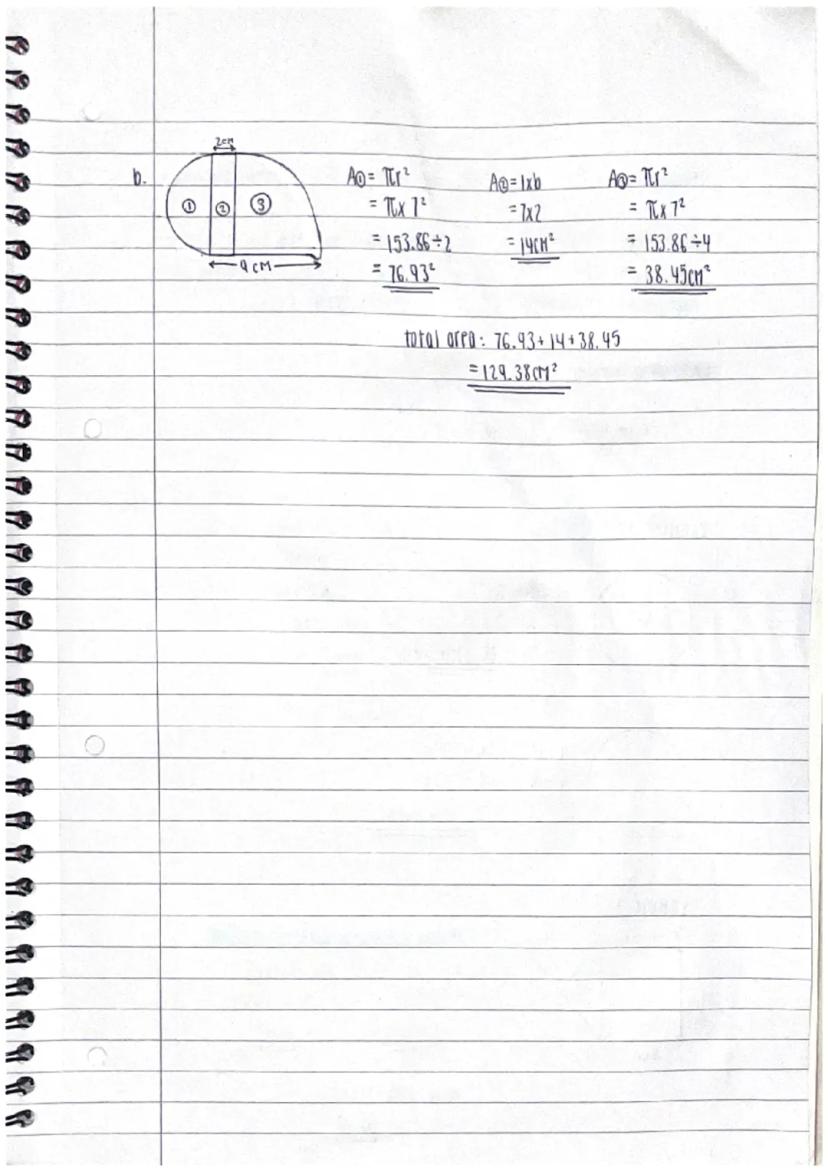 b.
2cm
① ② ③
9 cm
A① = πr²
= π x 7²
= 153.86 ÷ 2
= 76.93²
A② = l x b
= 7x2
= 14cm²
A③ = πr²
= π x 7²
= 153.86 ÷ 4
= 38.45cm²
total area : 76.93 + 14 + 38.45
= 129.38cm²